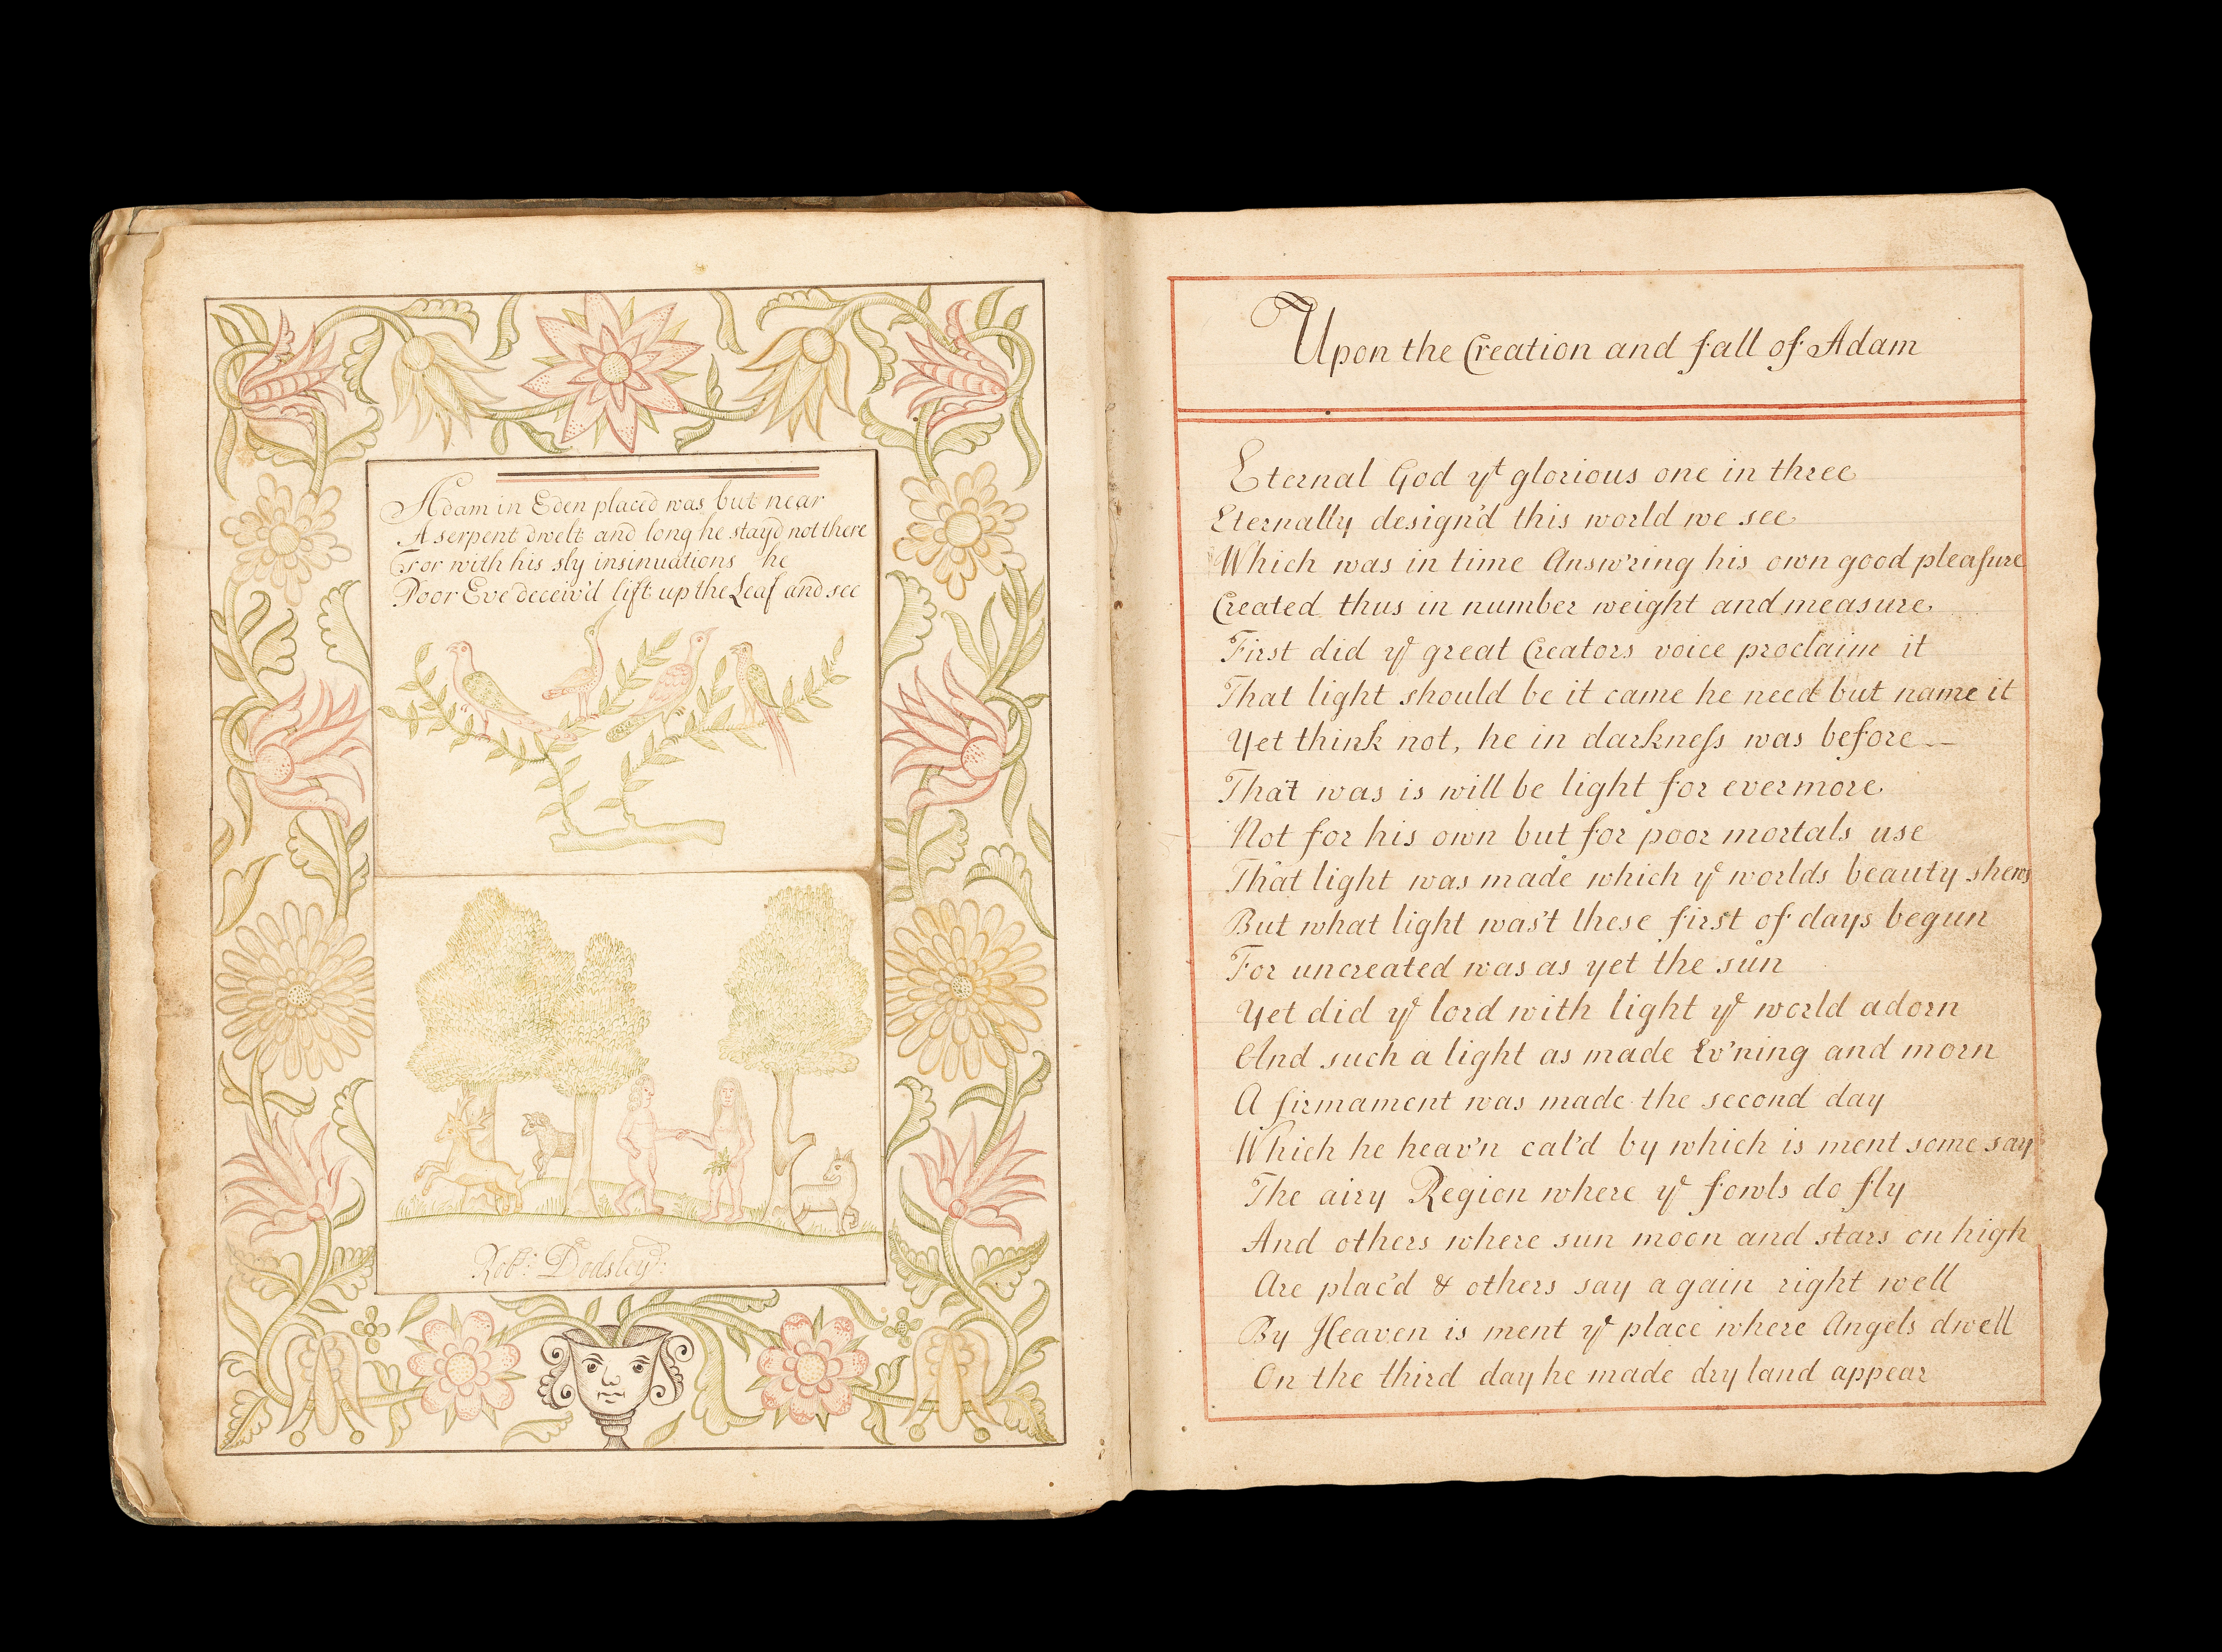 Adam in Eden plac'd was but near
A serpent dwelt and long he stay'd not there
For with his sly insinuations he
Poor Eve deceiv'd lift up the Leaf and see
Robt: Dodsley
Upon the Creation and fall of Adam
Eternal God yt glorious one in three
Eternally design'd this world we see
Which was in time Answ'ring his own good pleaſure
Created thus in number weight and measure
First did ye great Creators voice proclaim it
That light should be it came he need but name it
Yet think not, he in darkneſs was before —
That was is will be light for evermore
Not for his own but for poor mortals use
That light was made which ye worlds beauty shews
But what light was't these first of days begun
For uncreated was as yet the sun
Yet did ye lord with light ye world adorn
And such a light as made Ev'ning and morn
A firmament was made the second day
Which he heav'n cal'd by which is ment some say
The airy Region where ye fowls do fly
And others where sun moon and stars on high
Are plac'd & others say again right well
By Heaven is ment ye place where Angels dwell
On the third day he made dry land appear